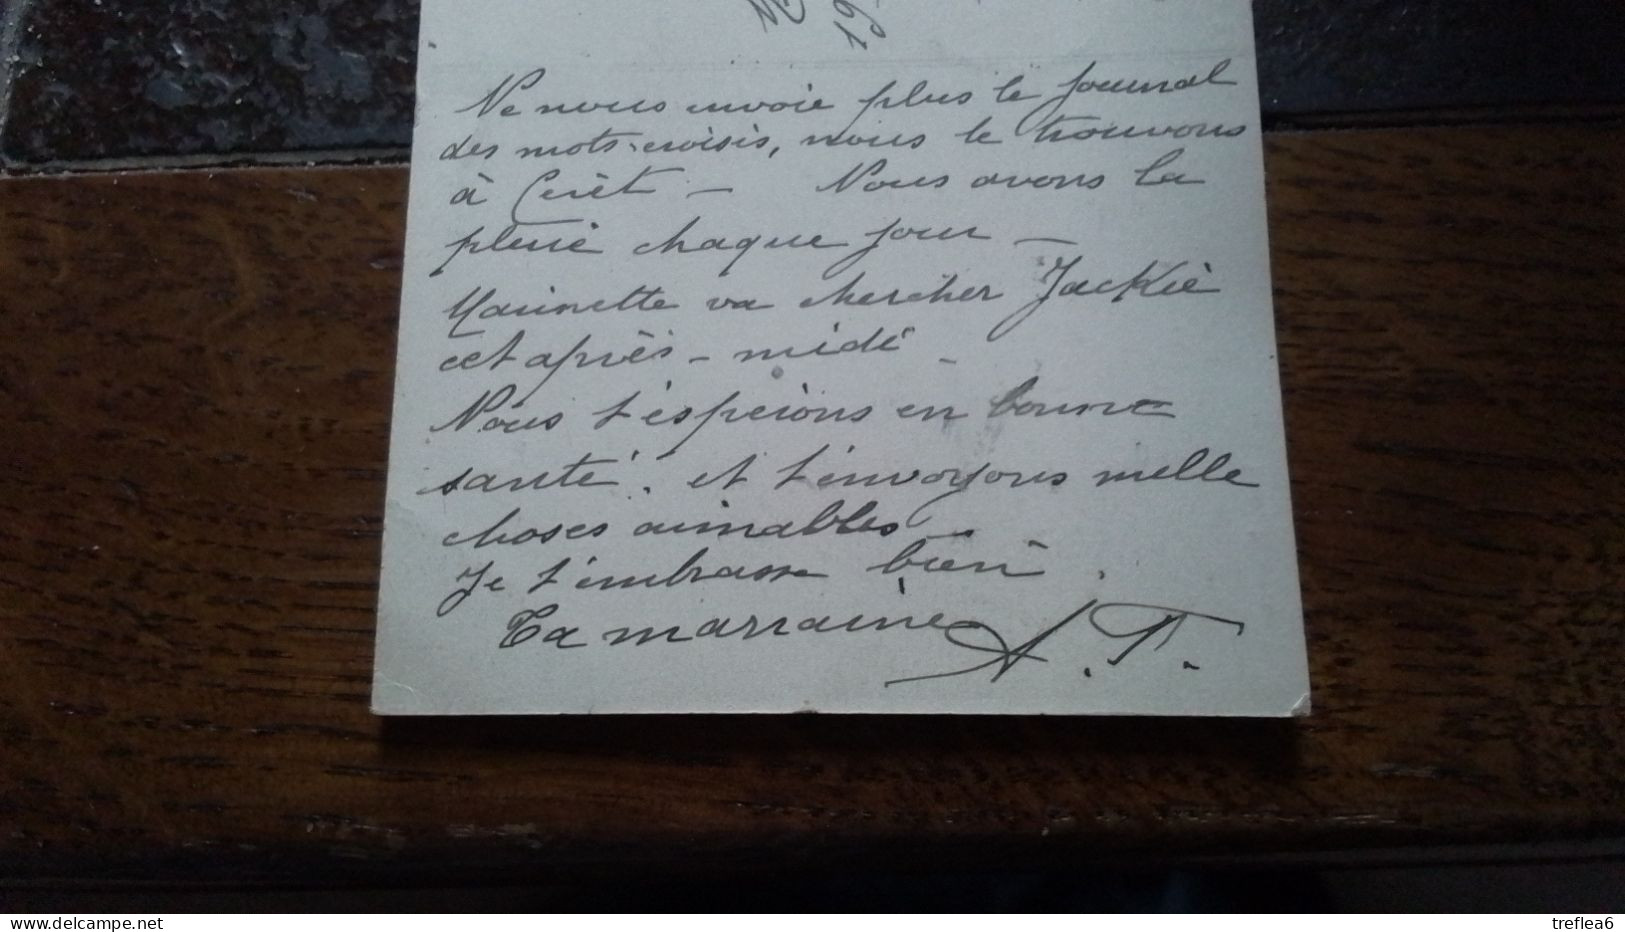 Ne nous envoie plus le journal
des mots-croisés, nous le trouvons
à Cerèt - Nous avons la
pluie chaque jour -
Marinette va chercher Jackie
cet après-midi -
Nous t'espérons en bonne
santé. et t'envoyons mille
choses aimables -
Je t'embrasse bien.
Ta marraine A.T.
www.delcampe.net
treflea6